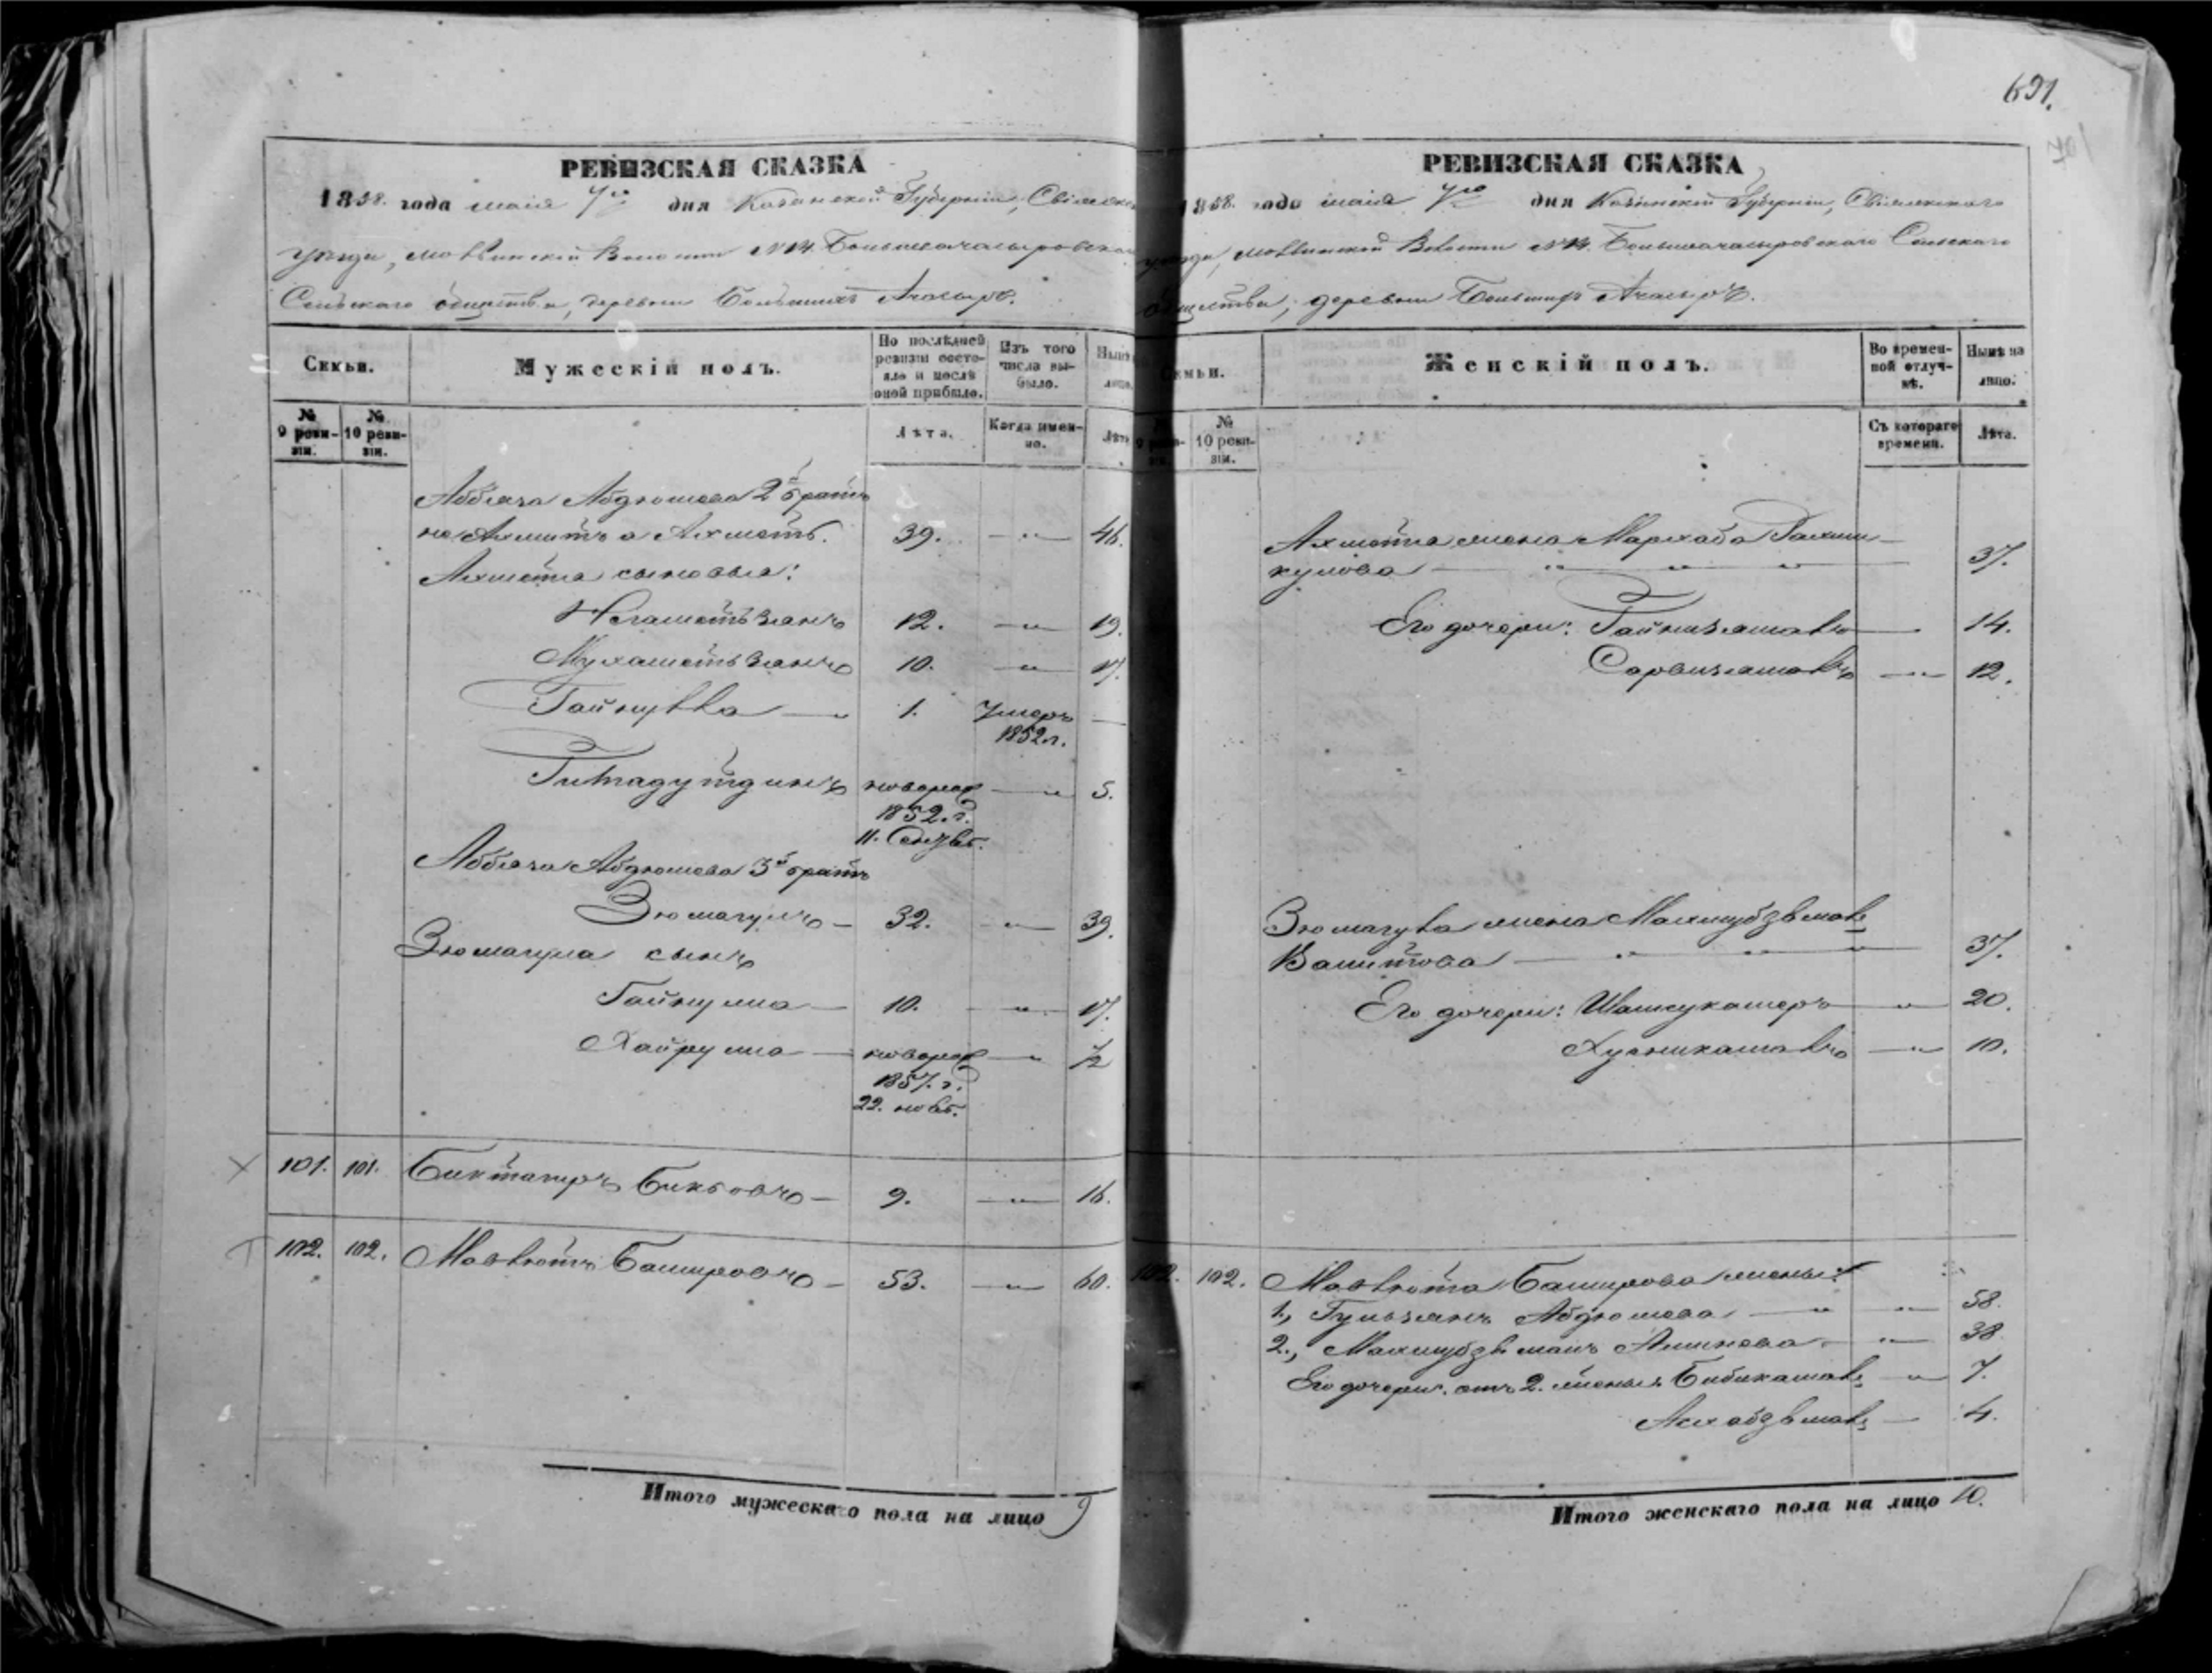 691.
РЕВИЗСКАЯ СКАЗКА
1858. года маія 7го дня Казанской Губерніи, Свіяжск
уезда, Волости №14. Большеачасыровска
Сельскаго общества, деревни Большихъ Ачасыръ.
Семьи. Мужескій полъ. По послѣдней ревизіи состояло и послѣ оной прибыло. Изъ того числа выбыло. Нынѣ лицо.
№ 9 ревизіи. № 10 ревизіи. Лѣта. Когда именно. Лѣта
Аббяза Абдюшева 2й братъ
Ахметъ. 39. — " — 46.
Ахмета сыновья:
Негаметзянъ 12. — " — 19.
Мухаметзянъ 10. — " — 17.
Гайнулла — " 1. Умеръ —
1852 г.
новорож — " 5.
1852. г.
11. Сентяб.
Аббяза Абдюшева 3й братъ
Зюмагулъ — 32. — " — 39.
Зюмагула сынъ
Гайнулла — 10. — " — 17.
Хайрулла — новорож — " 1/2
1857. г.
22. нояб.
101. 101. Биктагиръ Бикбовъ — 9. — " — 16.
102. 102. Мавлютъ Башировъ — 53. — " — 60.
Итого мужескаго пола на лицо 9
РЕВИЗСКАЯ СКАЗКА
1858. года маія 7го дня Казанской Губерніи, Свіяжскаго
уезда, Волости №14. Большеачасыровскаго Сельскаго
общества, деревни Большихъ Ачасыръ.
Семьи. Женскій полъ. Во временной отлучкѣ. Нынѣ на лицо.
№ 9 ревизіи. № 10 ревизіи. Съ котораго времени. Лѣта.
Ахмета жена Мархаба Рахман-
кулова — " " " — 37.
Его дочери: Гайнизямалъ — 14.
Сарвизямалъ — " — 12.
Зюмагула жена Махмубзямал
Валитова — " " " — 37.
Его дочери: Шамсукамеръ — " — 20.
Хусникамалъ — " — 10.
102. 102. Мавлюта Баширова жены:
1., Гульзянъ Абдюшева — " " — 58.
2., Махмубзямалъ Аминева — " — 38.
Его дочери: отъ 2. жены Бибикамал — " — 7.
Асхабзямал — 4.
Итого женскаго пола на лицо 10.